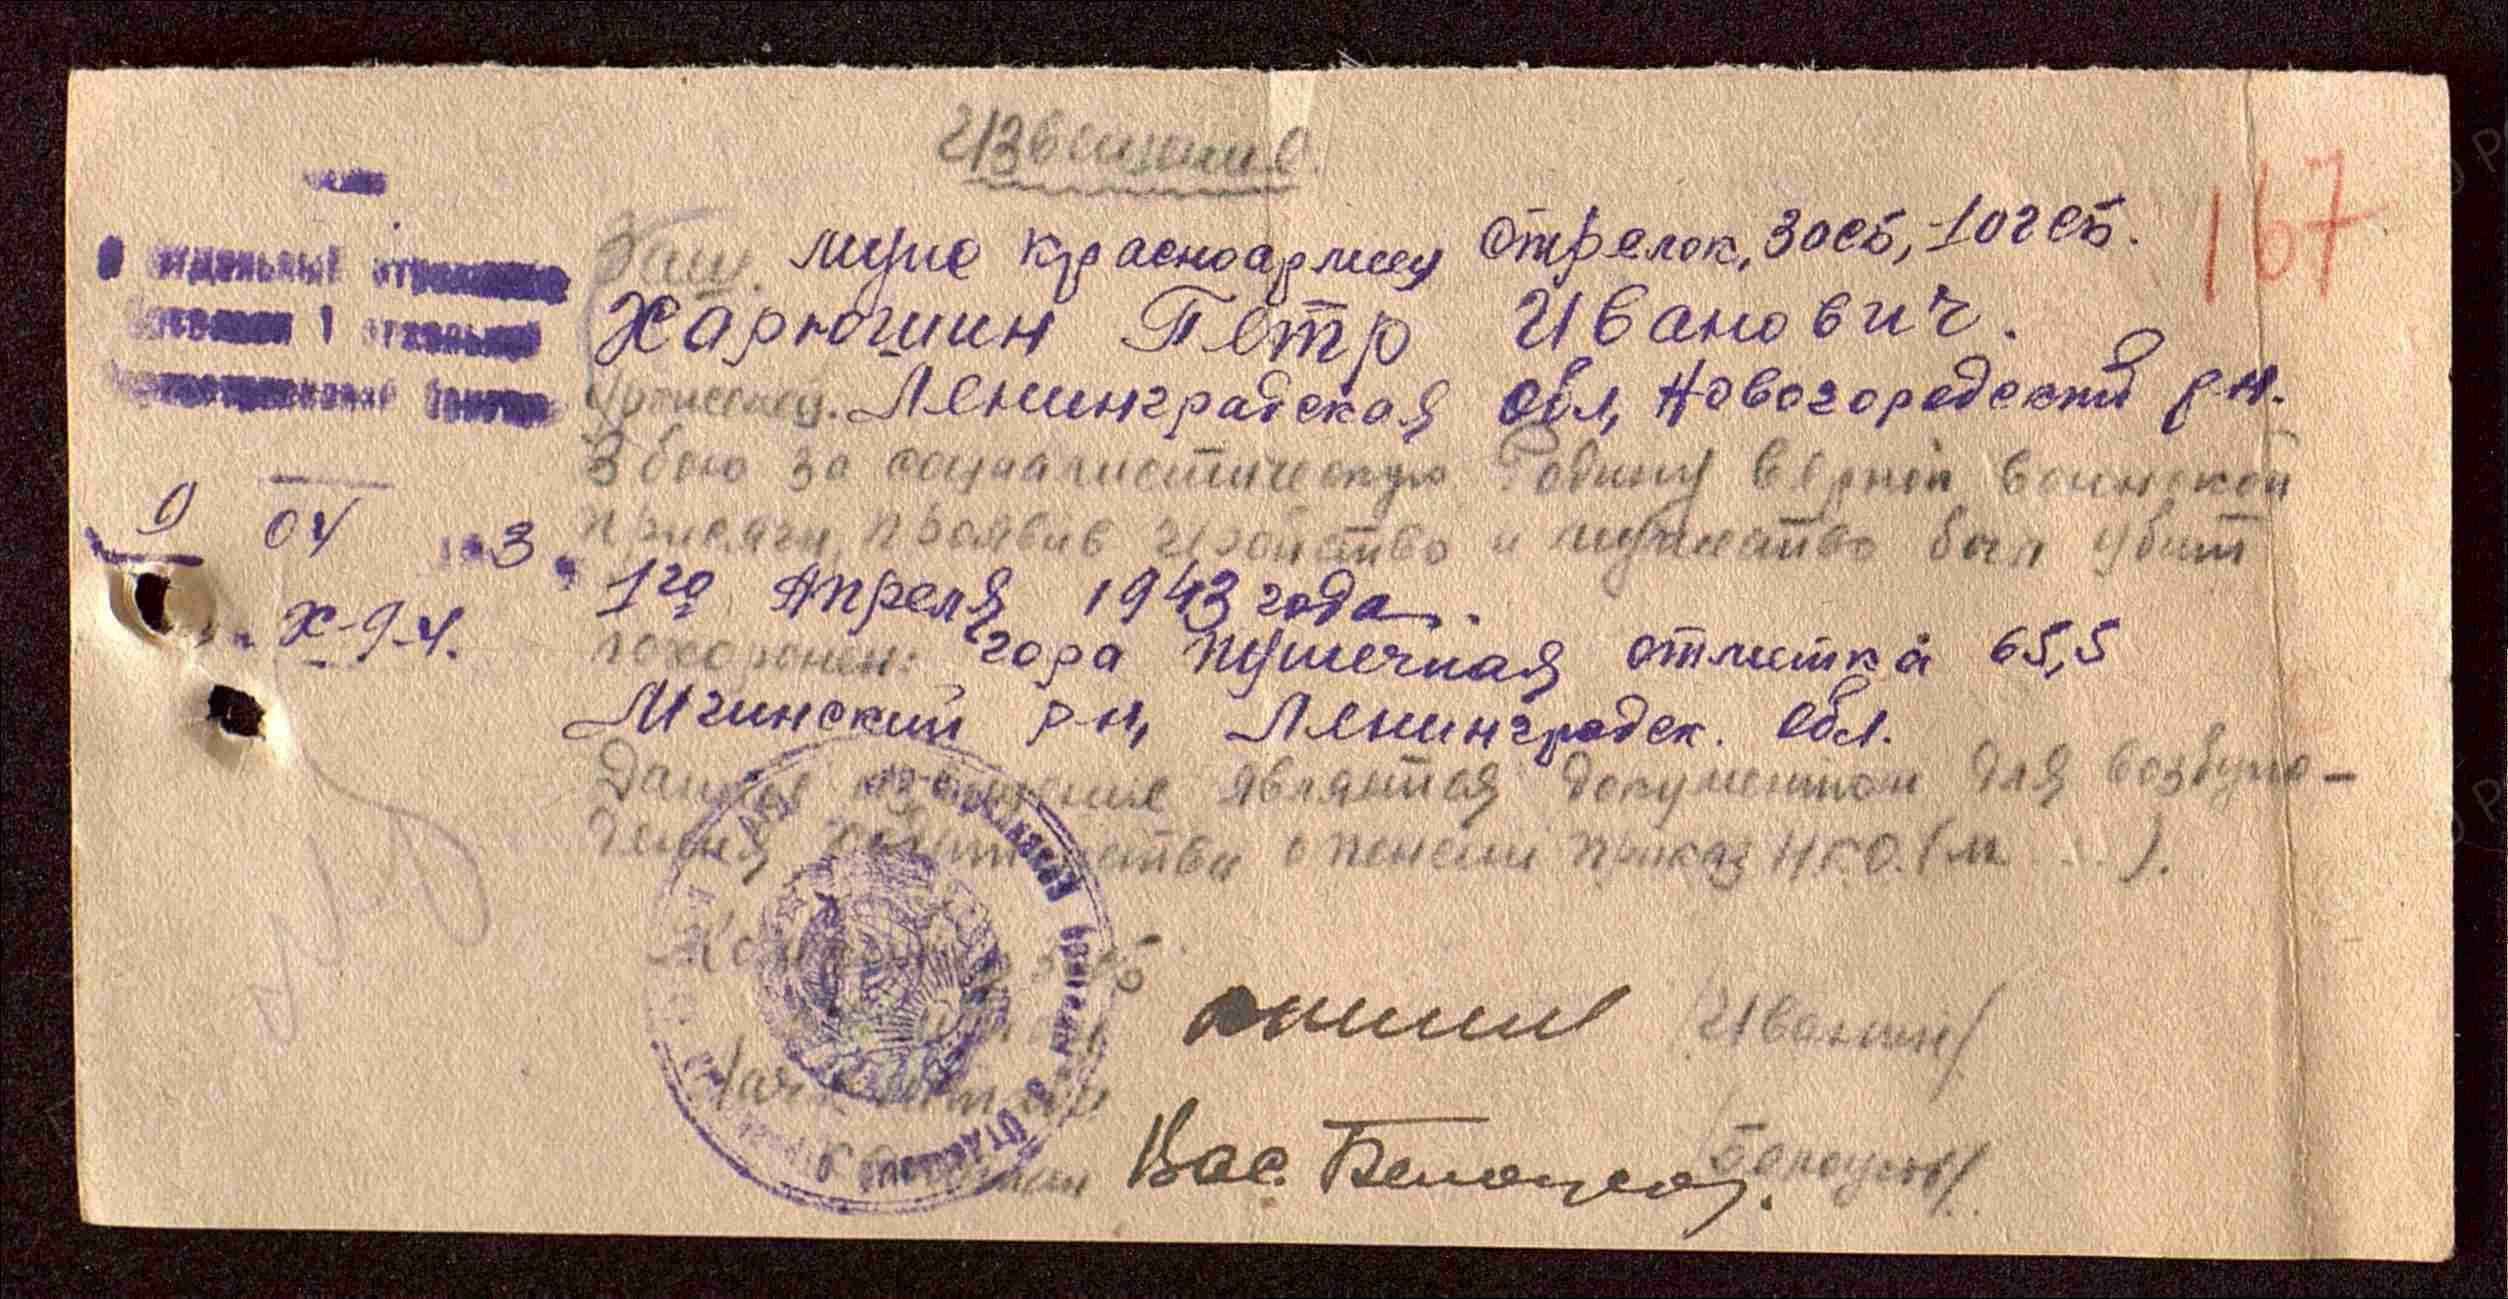 Извещение.
167
Ваш муж красноармеец стрелок, 3осб, 10гсб.
Харюшин Петр Иванович.
Уроженец. Ленинградская обл, Новогородский р-н.
В бою за социалистическую Родину верный воинской
присяги, проявив геройство и мужество был убит
1го Апреля 1943 года.
похоронен: гора Пушечная отметка 65,5
Мгинский р-н, Ленинградск. обл.
Данное извещение является документом для возбуж-
дения ходатайства о пенсии приказ Н.К.О. (№ ...).
3 отдельный стрелковый
батальон 1 отдельной
9 04 1943
Х-9-4.
/Иванин/
Вас. Белоусов. /Белоусов/